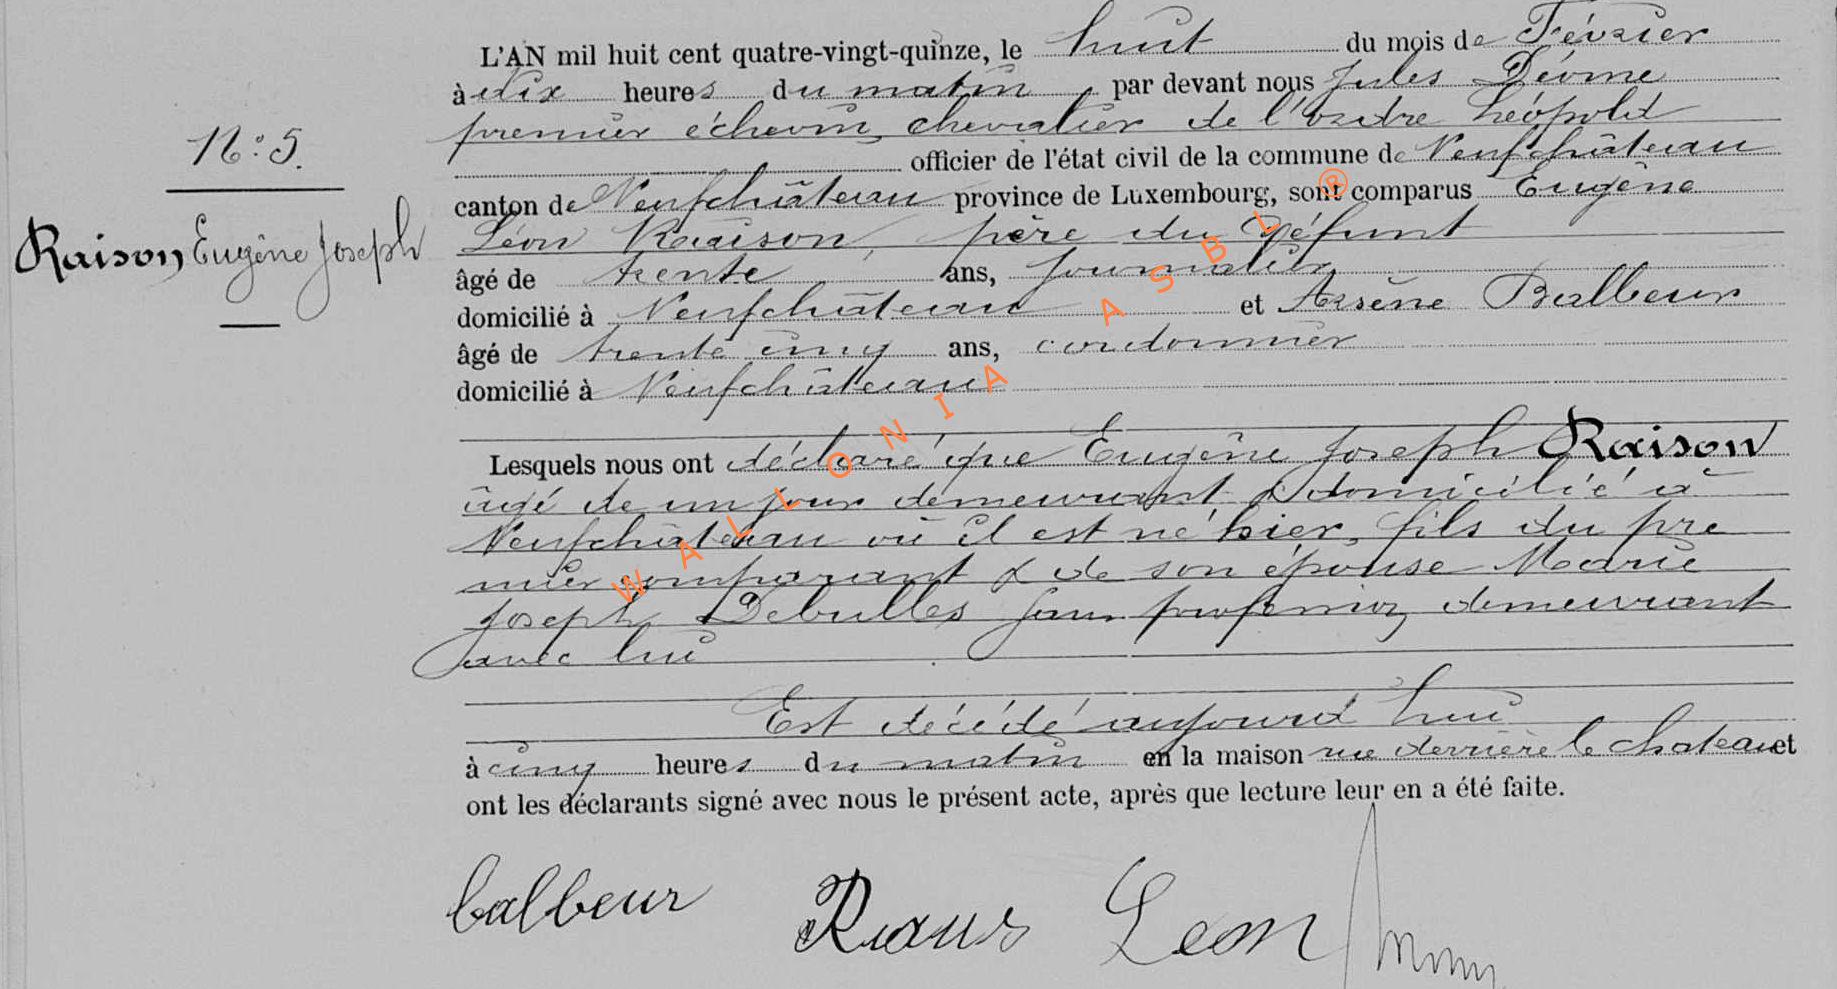 L'AN mil huit cent quatre-vingt-quinze, le huit du mois de Février
à dix heures du matin par devant nous Jules
premier échevin, chevalier de l'ordre Léopold
officier de l'état civil de la commune de Neufchâteau
N° 5.
canton de Neufchâteau province de Luxembourg, sont comparus Eugène
Léon Raison, père du défunt
Raison Eugène Joseph
âgé de trente ans, journalier,
domicilié à Neufchâteau et Arsène Balbeur
âgé de trente cinq ans, cordonnier
domicilié à Neufchâteau
Lesquels nous ont déclaré que Eugène Joseph Raison
âgé de un jour demeurant & domicilié à
Neufchâteau où il est né hier, fils du pre
mier comparant & de son épouse Marie
Joseph Debulles sans profession demeurant
avec lui
Est décédé aujourd'hui
à cinq heures du matin en la maison rue derrière le chateau et
ont les déclarants signé avec nous le présent acte, après que lecture leur en a été faite.
balbeur Leon
WALLONIA ASBL ®